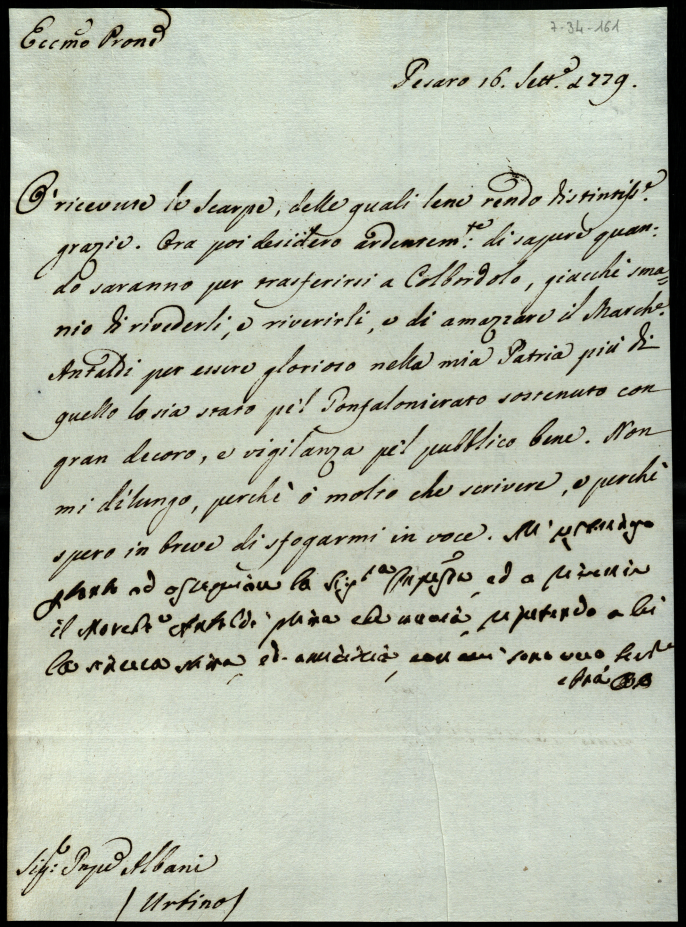 7-34-161
Eccmo Prone
Pesaro 16. Sett.e 1779.
Ò ricevute le Scarpe, delle quali lene rendo distintiss.e
grazie. Ora poi desidero ardentem.te: di sapere quan=
do saranno per trasferirsi a Colbordolo, giacchè sma=
nio di rivederli, e riverirli, e di amazzare il March.e
Antaldi per essere glorioso nella mia Patria più di
quello lo sia stato pel Gonfalonierato sostenuto con
gran decoro, e vigilanza pel pubblico bene. Non
mi dilungo, perchè ò molto che scrivere, e perchè
spero in breve di sfogarmi in voce. Mi
ad ossequiare la Sig.ra ed a riverire
il March.e Antaldi a lei
la ed amicizia, sono
Sig.e Pnpe Albani
/ Urbino /